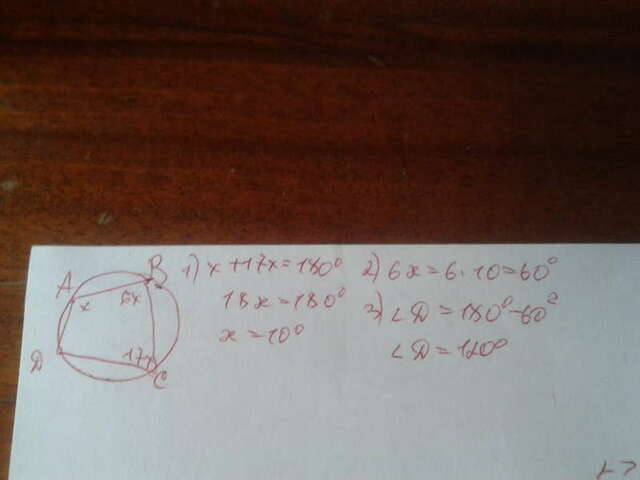 A
B
x
6x
D
17x
C
1) x+17x=180°
18x=180°
x=10°
2) 6x=6·10=60°
3) ∠D=180°-60°
∠D=120°